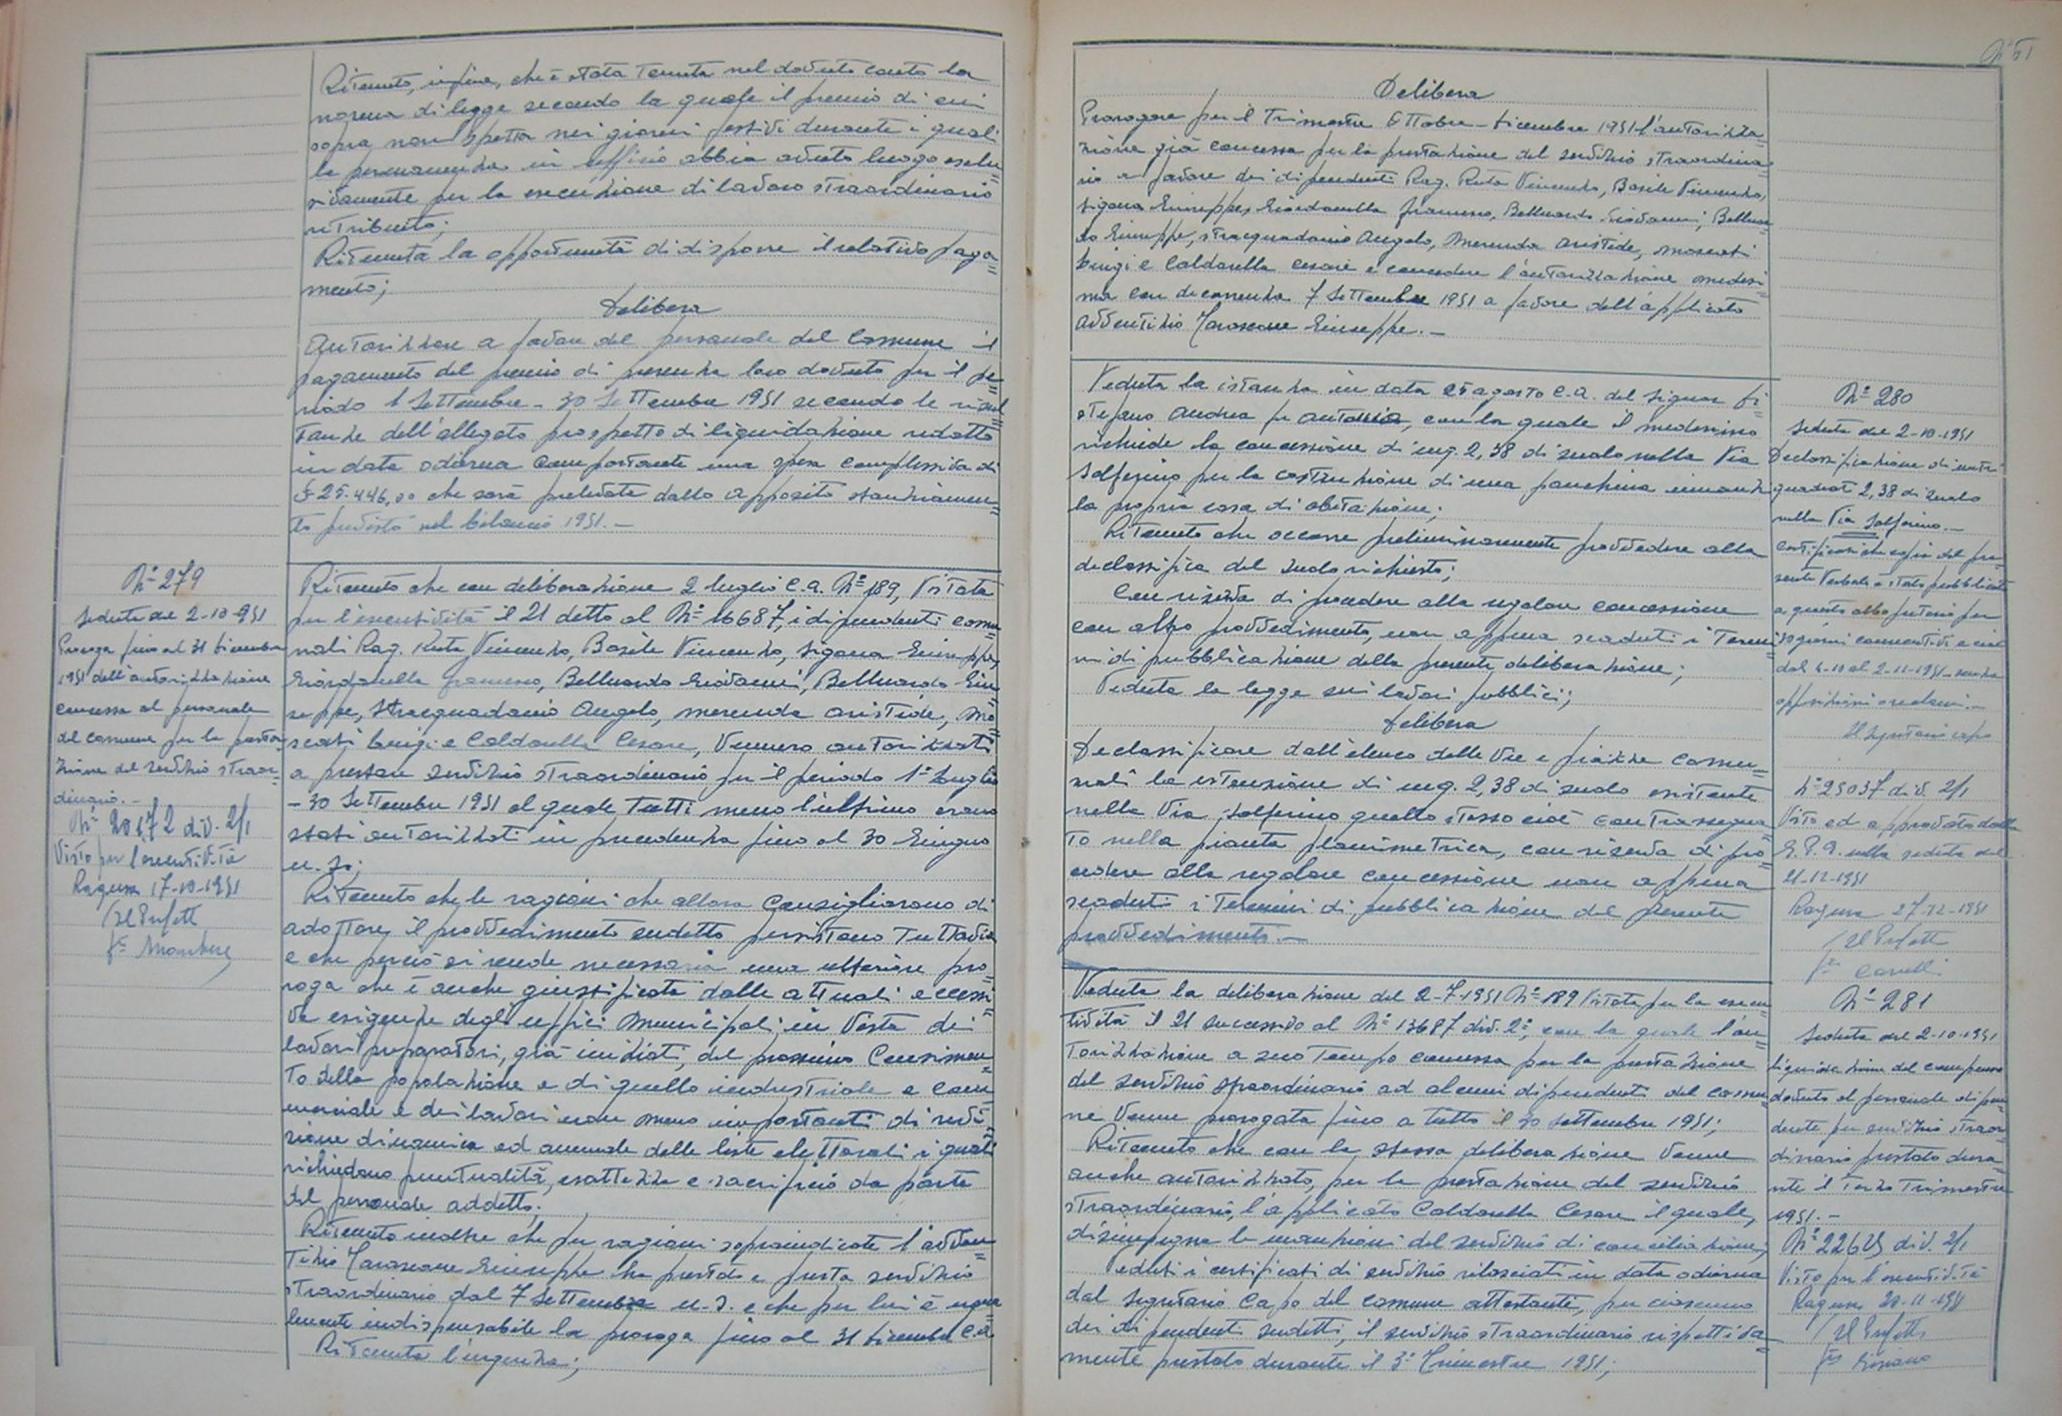 Ritenuto, infine, che è stata tenuta nel dovuto conto la
norma di legge secondo la quale il premio di cui
sopra non spetta nei giorni festivi durante i quali
la permanenza in ufficio abbia avuto luogo esclu=
sivamente per la esecuzione di lavoro straordinario
retribuito;
Ritenuta la opportunità di disporre il relativo paga=
mento;
Delibera
Autorizzare a favore del personale del Comune il
pagamento del premio di presenza loro dovuto per il pe=
riodo 1 Settembre - 30 Settembre 1951 secondo le risul
tanze dell'allegato prospetto di liquidazione redatto
in data odierna comportante una spesa complessiva di
£ 25.446,00 che sarà prelevata dallo apposito stanziamen=
to previsto nel bilancio 1951.-
N° 279
Seduta del 2-10-951
Proroga fino al 31 Dicembre
1951 dell'autorizzazione
concessa al personale
del comune per la presta=
zione del servizio straor=
dinario.-
N° 20172 div. 2/1
Visto per l'esecutività
Ragusa 17-10-1951
Il Prefetto
Ritenuto che con deliberazione 2 luglio c.a. N° 189, Vistata
per l'esecutività il 21 detto al N° 16687, i dipendenti comu=
nali Rag. Ruta Vincenzo, Basile Vincenzo, Sigona Giuseppe,
Giordanella Francesco, Belluardo Giovanni, Belluardo Giu
seppe, Stracquadanio Angelo, Merenda Aristide, Mo=
scati Luigi e Caldarella Cesare, Vennero autorizzati
a prestare servizio straordinario per il periodo 1° Luglio
- 30 Settembre 1951 al quale tutti meno l'ultimo erano
stati autorizzati in precedenza fino al 30 Giugno
u.s.;
Ritenuto che le ragioni che allora consigliarono di
adottare il provvedimento sudetto persistono tuttavia
e che perciò si rende necessaria una ulteriore pro=
roga che è anche giustificata dalle attuali eccessi
ve esigenze degli uffici Municipali in vista dei
lavori preparatori, già iniziati, del prossimo Censimen=
to della popolazione e di quello industriale e com
merciale e dei lavori non meno importanti di revi=
sione dinamica ed annuale delle liste elettorali i quali
richiedono puntualità, esattezza e sacrificio da parte
del personale addetto;
Ritenuto inoltre che per ragioni sopraindicate l'avven=
tizio Tarascone Giuseppe ha prestato e presta servizio
straordinario dal 7 Settembre u.s. e che per lui è ugua
lmente indispensabile la proroga fino al 31 Dicembre c.a.
Ritenuta l'urgenza;
Delibera
Prorogare per il Trimestre Ottobre - Dicembre 1951 l'autorizza=
zione già concessa per la prestazione del servizio straordina=
rio a favore dei dipendenti Rag. Ruta Vincenzo, Basile Vincenzo,
Sigona Giuseppe, Giordanella Francesco, Belluardo Giovanni, Belluar=
do Giuseppe, Stracquadanio Angelo, Merenda Aristide, Moscati
Luigi e Caldarella Cesare e concedere l'autorizzazione medesi=
ma con decorrenza 7 Settembre 1951 a favore dell'applicato
avventizio Tarascone Giuseppe.-
Veduta la istanza in data 25 agosto c.a. del Signor Di=
stefano Andrea fu Antonino, con la quale il medesimo
richiede la concessione di mq. 2,38 di suolo nella Via
Solferino per la costruzione di una panchina innanzi
la propria casa di abitazione;
Ritenuto che occorre preliminarmente provvedere alla
declassifica del suolo richiesto;
Con riserva di procedere alla regolare concessione
con altro provvedimento, non appena scaduti i termi=
ni di pubblicazione della presente deliberazione;
Veduta la legge sui lavori pubblici;
Delibera
Declassificare dall'elenco delle Vie e piazze comu=
nali la estensione di mq. 2,38 di suolo esistente
nella Via Solferino quello stesso cioè contrassegna
to nella pianta planimetrica, con riserva di pro=
cedere alla regolare concessione non appena
scaduti i termini di pubblicazione del presente
provvedimento.-
N° 280
Seduta del 2-10-1951
Declassificazione di metri
quadrati 2,38 di suolo
nella Via Solferino.-
Certificasi che copia del pre=
sente Verbale è stata pubblicata
a questo albo pretorio per
15 giorni consecutivi e cioè
dal 4-10 al 2-11-1951 senza
opposizioni o reclami.-
Il Segretario capo
N° 25037 div. 2/1
Visto ed approvato dalla
G.P.A. nella seduta del
21-12-1951
Ragusa 27-12-1951
Il Prefetto
Veduta la deliberazione del 2-7-1951 N° 189 Vistata per la esecu=
tività il 21 successivo al N° 13687 div. 2°, con la quale l'au=
torizzazione a suo tempo concessa per la prestazione
del servizio straordinario ad alcuni dipendenti del comu=
ne Venne prorogata fino a tutto il 30 Settembre 1951;
Ritenuto che con la stessa deliberazione Venne
anche autorizzato, per la prestazione del servizio
straordinario, l'applicato Caldarella Cesare il quale,
disimpegna le mansioni del servizio di conciliazione;
Veduti i certificati di servizio rilasciati in data odierna
dal Segretario Capo del comune attestanti, per ciascuno
dei dipendenti sudetti, il servizio straordinario rispettiva=
mente prestato durante il 3° Trimestre 1951;
N° 281
Seduta del 2-10-1951
Liquidazione del compenso
dovuto al personale dipen=
dente per servizio straor=
dinario prestato dura=
nte il Terzo Trimestre
1951.-
N° 22625 div. 2/1
Visto per l'esecutività
Ragusa 20-11-1951
Il Prefetto